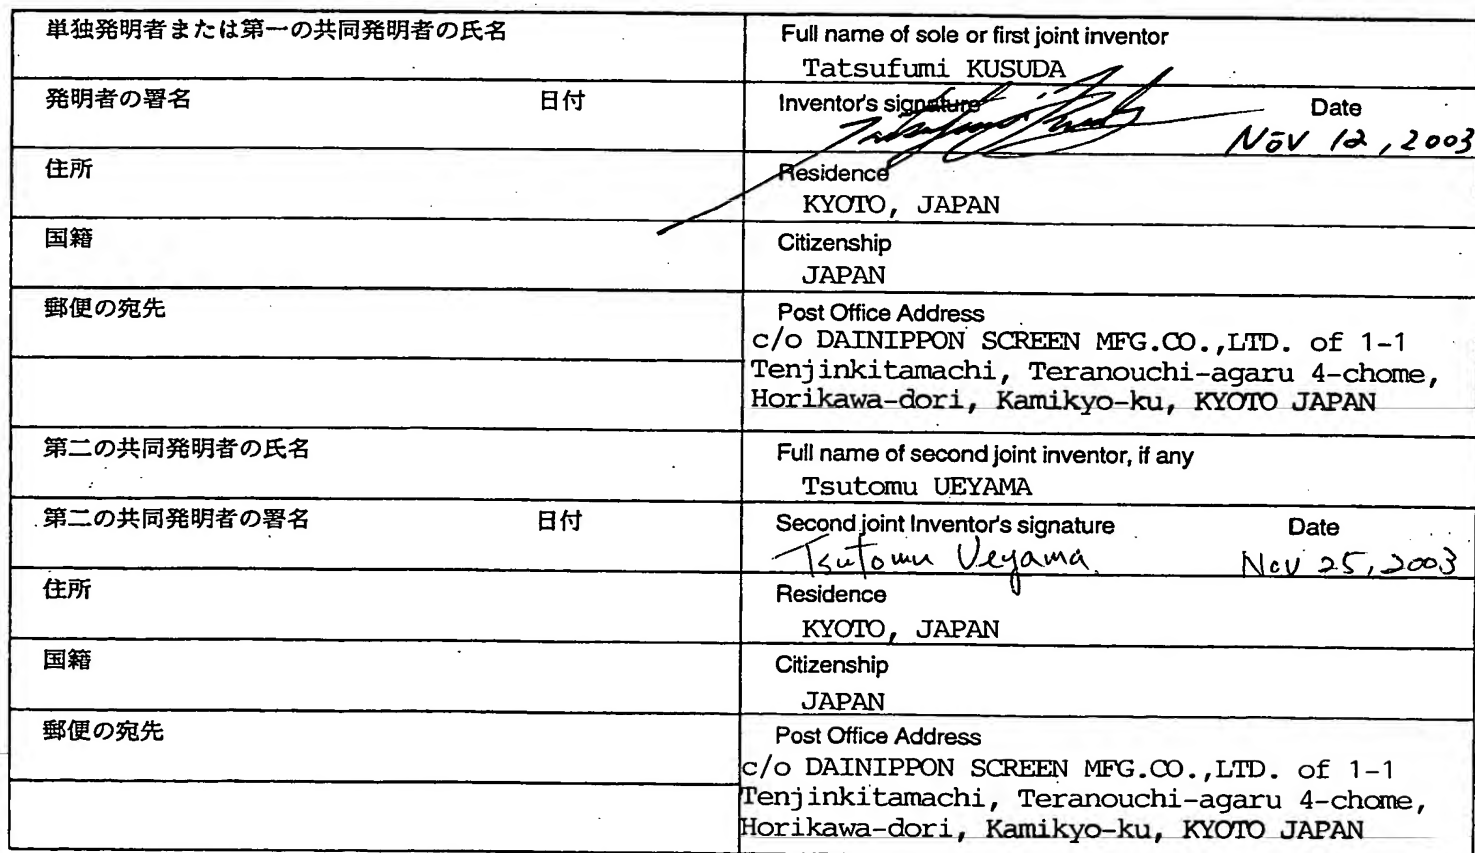 単独発明者または第一の共同発明者の氏名
Full name of sole or first joint inventor
Tatsufumi KUSUDA
発明者の署名 日付
Inventor's signature Date
Tatsufumi Kusuda Nov 12, 2003
住所
Residence
KYOTO, JAPAN
国籍
Citizenship
JAPAN
郵便の宛先
Post Office Address
c/o DAINIPPON SCREEN MFG.CO.,LTD. of 1-1
Tenjinkitamachi, Teranouchi-agaru 4-chome,
Horikawa-dori, Kamikyo-ku, KYOTO JAPAN
第二の共同発明者の氏名
Full name of second joint inventor, if any
Tsutomu UEYAMA
第二の共同発明者の署名 日付
Second joint Inventor's signature Date
Tsutomu Ueyama. Nov 25, 2003
住所
Residence
KYOTO, JAPAN
国籍
Citizenship
JAPAN
郵便の宛先
Post Office Address
c/o DAINIPPON SCREEN MFG.CO.,LTD. of 1-1
Tenjinkitamachi, Teranouchi-agaru 4-chome,
Horikawa-dori, Kamikyo-ku, KYOTO JAPAN